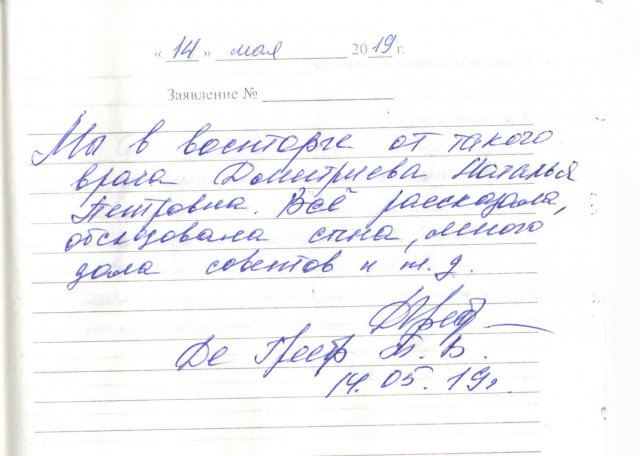 « 14 » мая 2019 г.
Заявление №
Мы в восторге от такого
врача Дмитриева Наталья
Петровна. Всё рассказала,
обследовала сына, много
дала советов и т. д.
Де
14.05.19г.